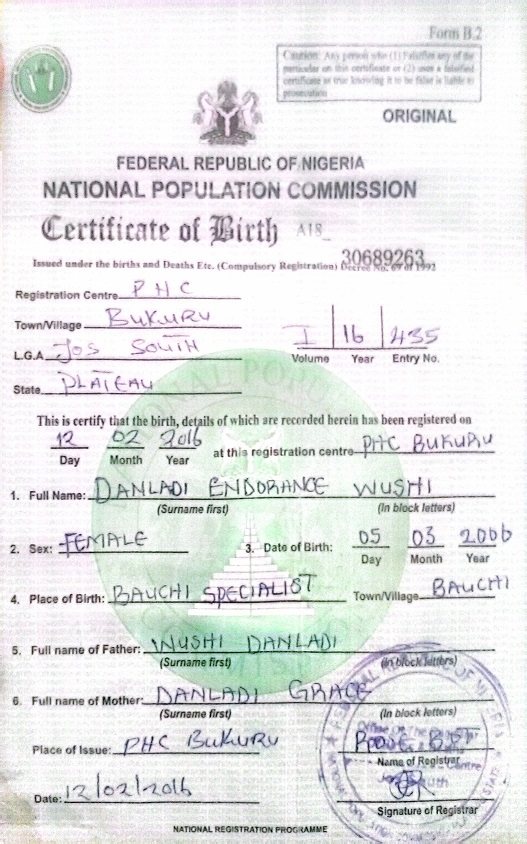 Form B.2
Caution: Any person who (1) Falsifies any of the
particular on this certificate or (2) uses a falsified
certificate as true knowing it to be false is liable to
prosecution
ORIGINAL
FEDERAL REPUBLIC OF NIGERIA
NATIONAL POPULATION COMMISSION
Certificate of Birth A18_
30689263
Issued under the births and Deaths Etc. (Compulsory Registration) Decree No. 69 of 1992
Registration Centre PHC
Town/Village BUKURU
L.G.A JOS SOUTH
I 16 435
Volume Year Entry No.
State PLATEAU
This is certify that the birth, details of which are recorded herein has been registered on
12 02 2016 at this registration centre PHC BUKURU
Day Month Year
1. Full Name: DANLADI ENDORANCE WUSHI
(Surname first) (In block letters)
2. Sex: FEMALE 3. Date of Birth: 05 03 2006
Day Month Year
4. Place of Birth: BAUCHI SPECIALIST Town/Village BAUCHI
5. Full name of Father: WUSHI DANLADI
(Surname first) (In block letters)
6. Full name of Mother: DANLADI GRACE
(Surname first) (In block letters)
Place of Issue: PHC BUKURU
Name of Registrar
Date: 12/02/2016
Signature of Registrar
NATIONAL REGISTRATION PROGRAMME